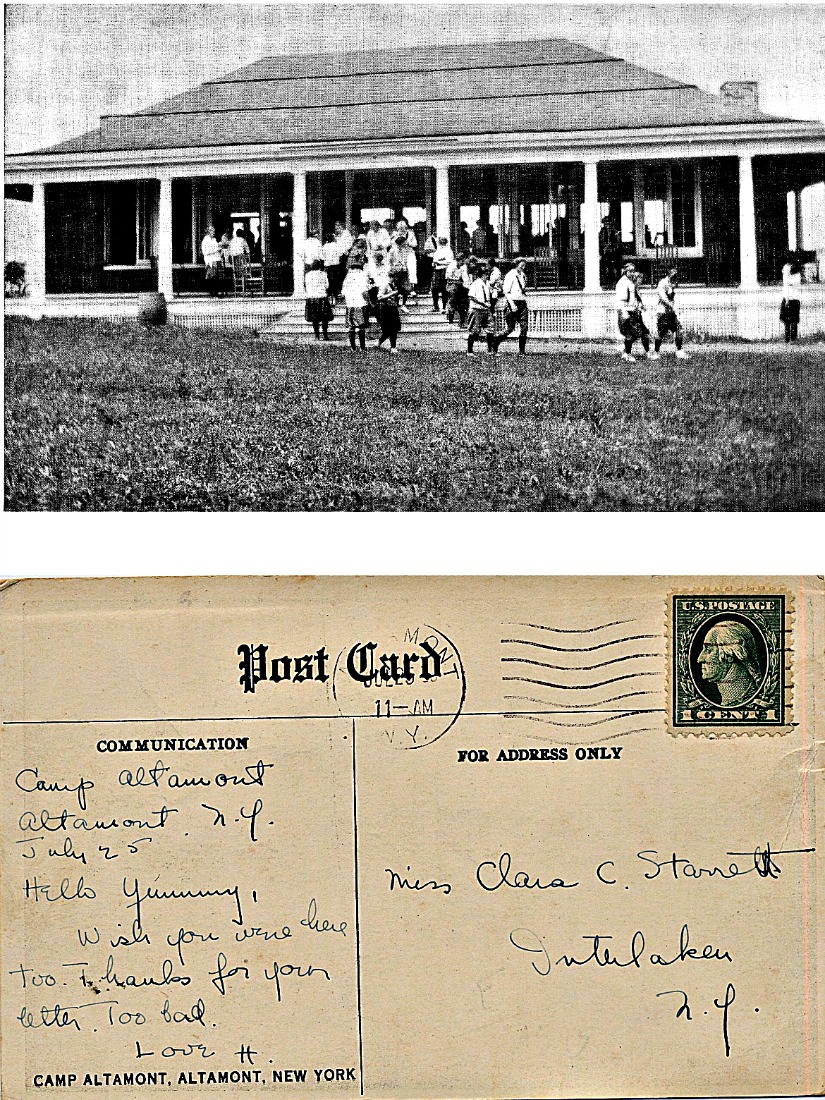 U.S. POSTAGE
1 CENT 1
Post Card
MONT
JUL 25
11-AM
N.Y.
COMMUNICATION
FOR ADDRESS ONLY
Camp Altamont
Altamont. N.Y.
July 25
Hello Yummmy,
Wish you were here
too. Thanks for your
letter. Too bad.
Love H.
Miss Clara C. Starrett
Interlaken
N.Y.
CAMP ALTAMONT, ALTAMONT, NEW YORK